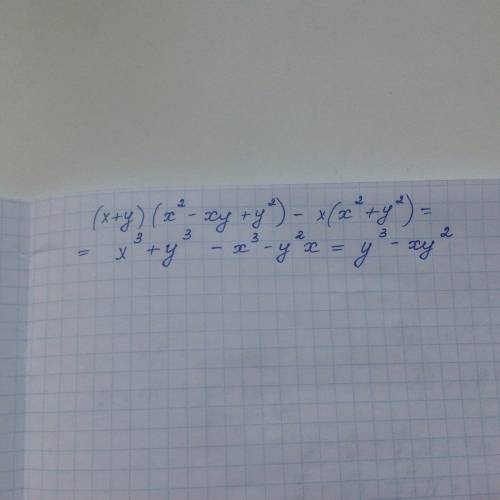 (x+y)(x²-xy+y²)-x(x²+y²)=
= x³+y³-x³-y²x=y³-xy²